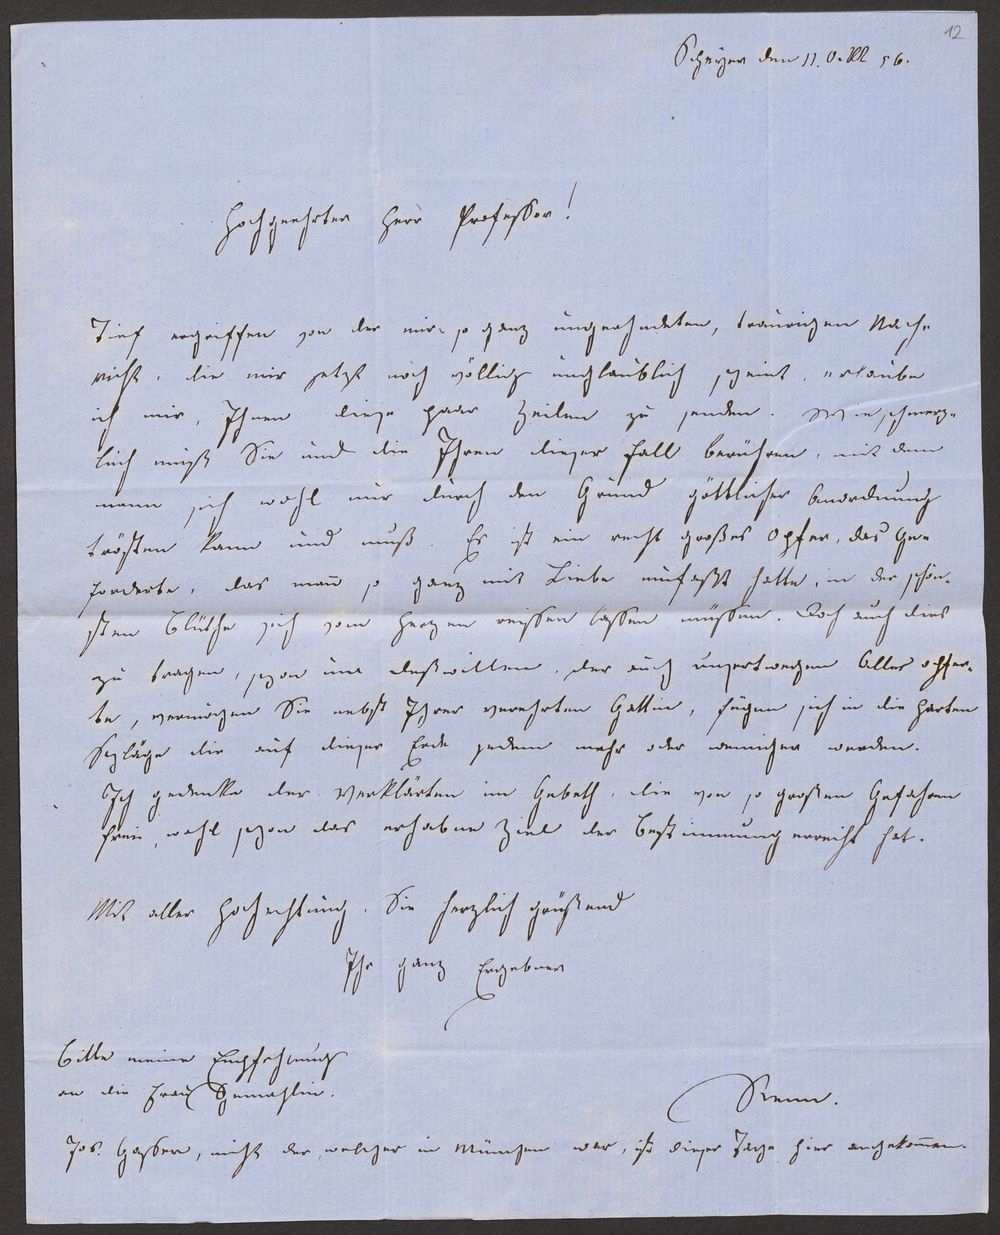 12
Speyer den 11. Okt 56.
Hochgeehrter Herr Professor!
Tief ergriffen von der mir so ganz ungeahndeten, traurigen Nach-
richt, die mir jetzt noch völlig unglaublich scheint, erlaube
ich mir, Ihnen diese paar Zeilen zu senden. Wie schmerz-
lich muß Sie und die Ihren dieser Fall berühren, mit dem
mann sich wohl nur durch den Grund göttlicher Anordnung
trösten kann und muß. Es ist ein recht großes Opfer, das Ge-
forderte, das man so ganz mit Liebe umfaßt hatte, in der schön-
sten Blüthe sich vom Herzen reissen lassen müssen. Doch auch dies
zu tragen, schon um deßwillen, der auch unsertwegen Alles opfer-
te, vermögen Sie nebst Ihrer verehrten Gattin, fügen sich in die harten
Schläge die auf dieser Erde jedem mehr oder weniger werden.
Ich gedenke der Verklärten im Gebeth, die von so großen Gefahren
frei, wohl schon das erhabne Ziel der Bestimmung erreicht hat.
Mit aller Hochachtung, Sie herzlich grüßend
Ihr ganz Ergebner
Bitte meine Empfehlung
an die Frau Gemahlin.
Renn.
Jos. Gasser, nicht der, welcher in München war, ist dieser Tage hier angekommen.